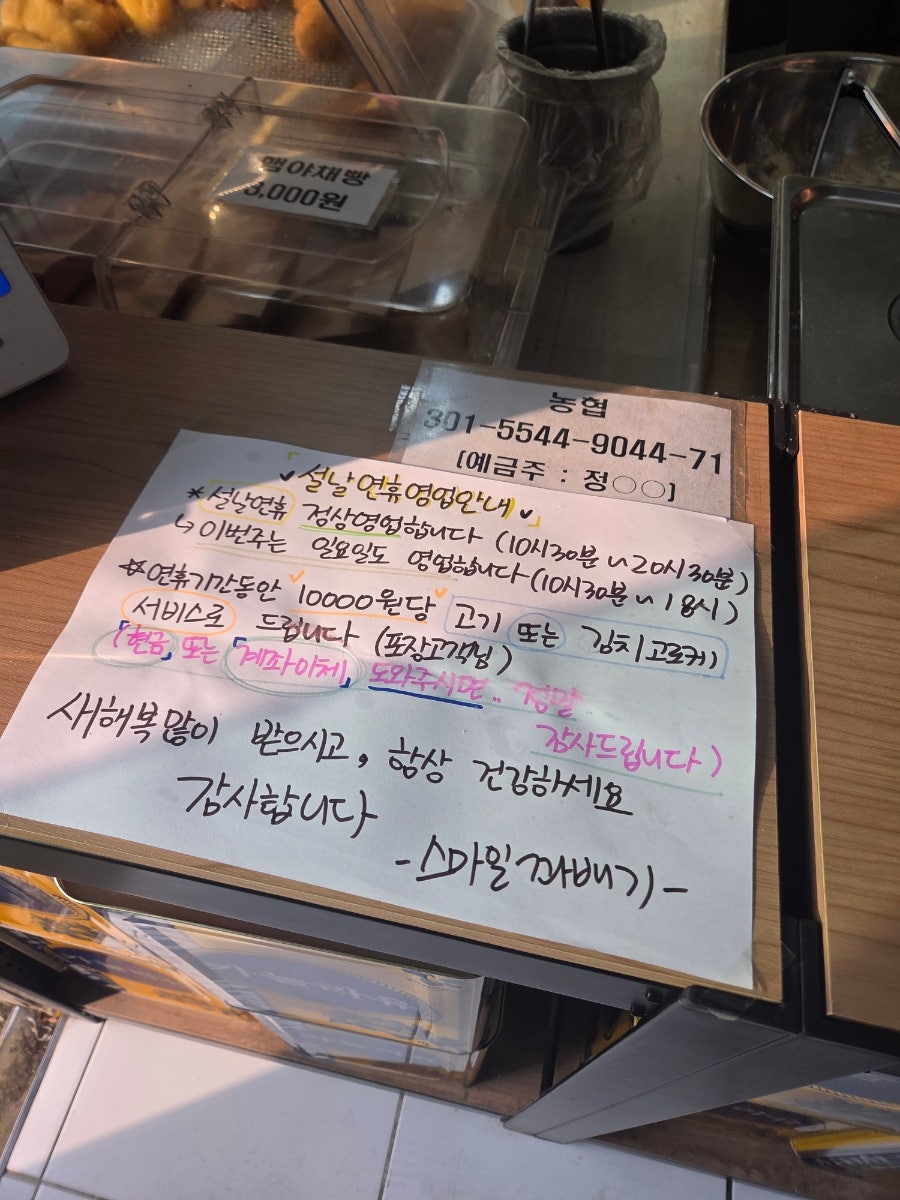 햄야채빵
3,000원
농협
301-5544-9044-71
(예금주 : 정○○)
「✓설날연휴영업안내✓」
*설날연휴 정상영업합니다 (10시30분~20시30분)
↳이번주는 일요일도 영업합니다-(10시30분~18시)
*연휴기간동안 10000원당 고기 또는 김치고로케)
서비스로 드립니다 (포장고객님)
(「현금」 또는 「계좌이체」 도와주시면.. 정말
감사드립니다)
새해복많이 받으시고, 항상 건강하세요
감사합니다
-스마일꽈배기-